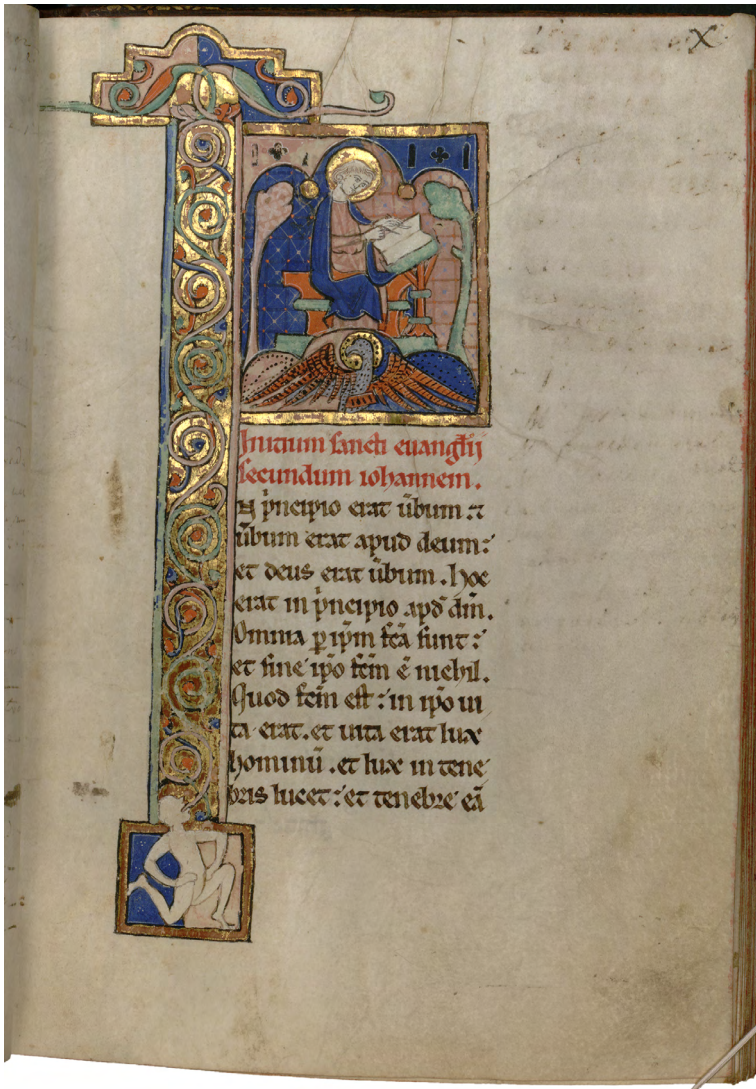 X
Initium sancti euanglij
secundum iohannem.
N p̾ncipio erat ūbum : ⁊
ūbum erat apud deum :
et deus erat ūbum . hoc
erat in p̾ncipio apđ dm̄.
Omnia ꝑ ip̄m fc̄a sunt :
et sine ip̄o fc̄m ē nichil.
Quod fc̄m est : in ip̄o ui
ta erat. et uita erat lux
hominū . et lux in tene
bris lucet : et tenebre eā